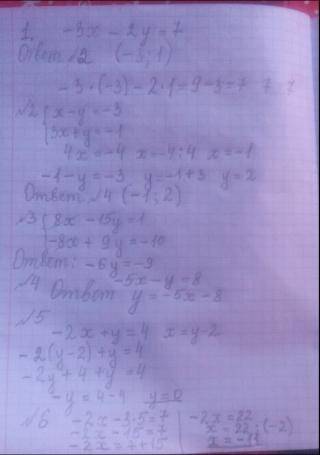 1. -3x - 2y = 7
Ответ №2 (-3; 1)
-3·(-3) - 2·1 = 9 - 2 = 7 7 7
№2 { x - y = -3
3x + y = -1
4x = -4 x = -4:4 x = -1
-1 - y = -3 y = -1+3 y = 2
Ответ №4 (-1; 2)
№3 { 8x - 15y = 1
-8x + 9y = -10
Ответ: -6y = -9
№4 -5x - y = 8
Ответ y = -5x - 8
№5
-2x + y = 4 x = y-2
-2(y-2) + y = 4
-2y + 4 + y = 4
-y = 4-4 y = 0
№6 -2x - 3·5 = 7 -2x = 22
-2x - 15 = 7 x = 22:(-2)
-2x = 7+15 x = -11